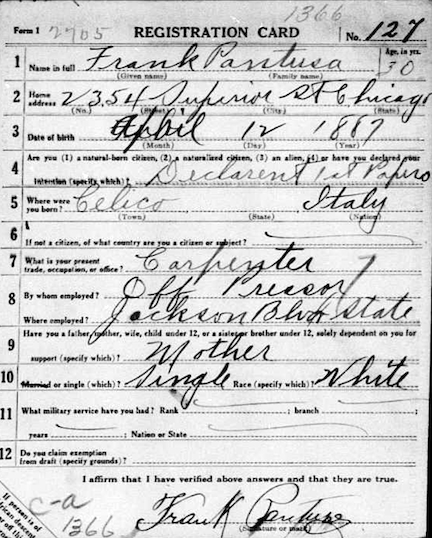 1366
Form 1 2705 REGISTRATION CARD No. 127
1 Name in full Frank Pantusa Age, in yrs. 30
(Given name) (Family name)
2 Home address 2354 Superior St Chicago
(No.) (Street) (City) (State)
3 Date of birth April 12 1887
(Month) (Day) (Year)
4 Are you (1) a natural-born citizen, (2) a naturalized citizen, (3) an alien, (4) or have you declared your
intention (specify which)? Declarent 1st Papers
5 Where were you born? Celico Italy
(Town) (State) (Nation)
6 If not a citizen, of what country are you a citizen or subject?
7 What is your present trade, occupation, or office? Carpenter
8 By whom employed? Off Pressor
Where employed? Jackson Blvd State
9 Have you a father, mother, wife, child under 12, or a sister or brother under 12, solely dependent on you for
support (specify which)? Mother
10 Married or single (which)? Single Race (specify which)? White
11 What military service have you had? Rank ; branch ;
years ; Nation or State
12 Do you claim exemption from draft (specify grounds)?
I affirm that I have verified above answers and that they are true.
If person is of
African descent
C-a
1366
Frank Pantusa
(Signature or mark)